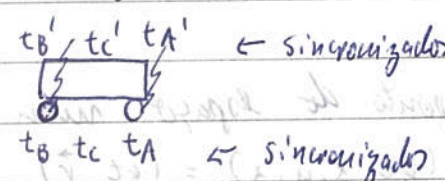 t_B' t_C' t_A' ← sincronizados
t_B t_C t_A ← sincronizados